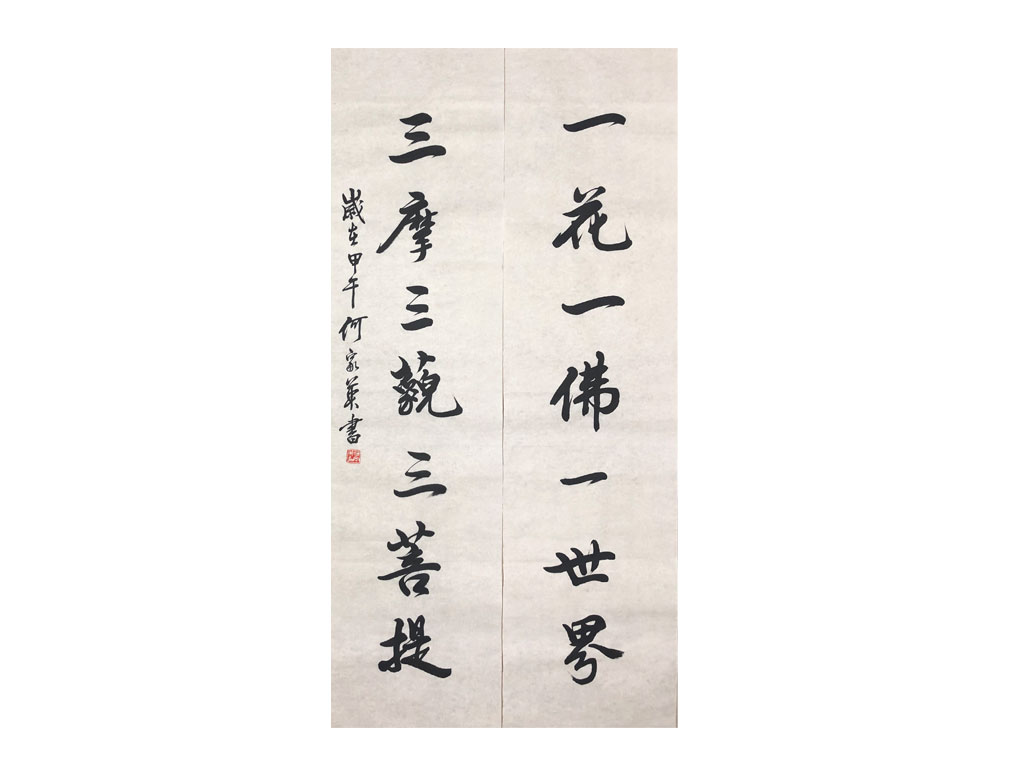 一花一佛一世界
三摩三藐三菩提
歲在甲午何家英書